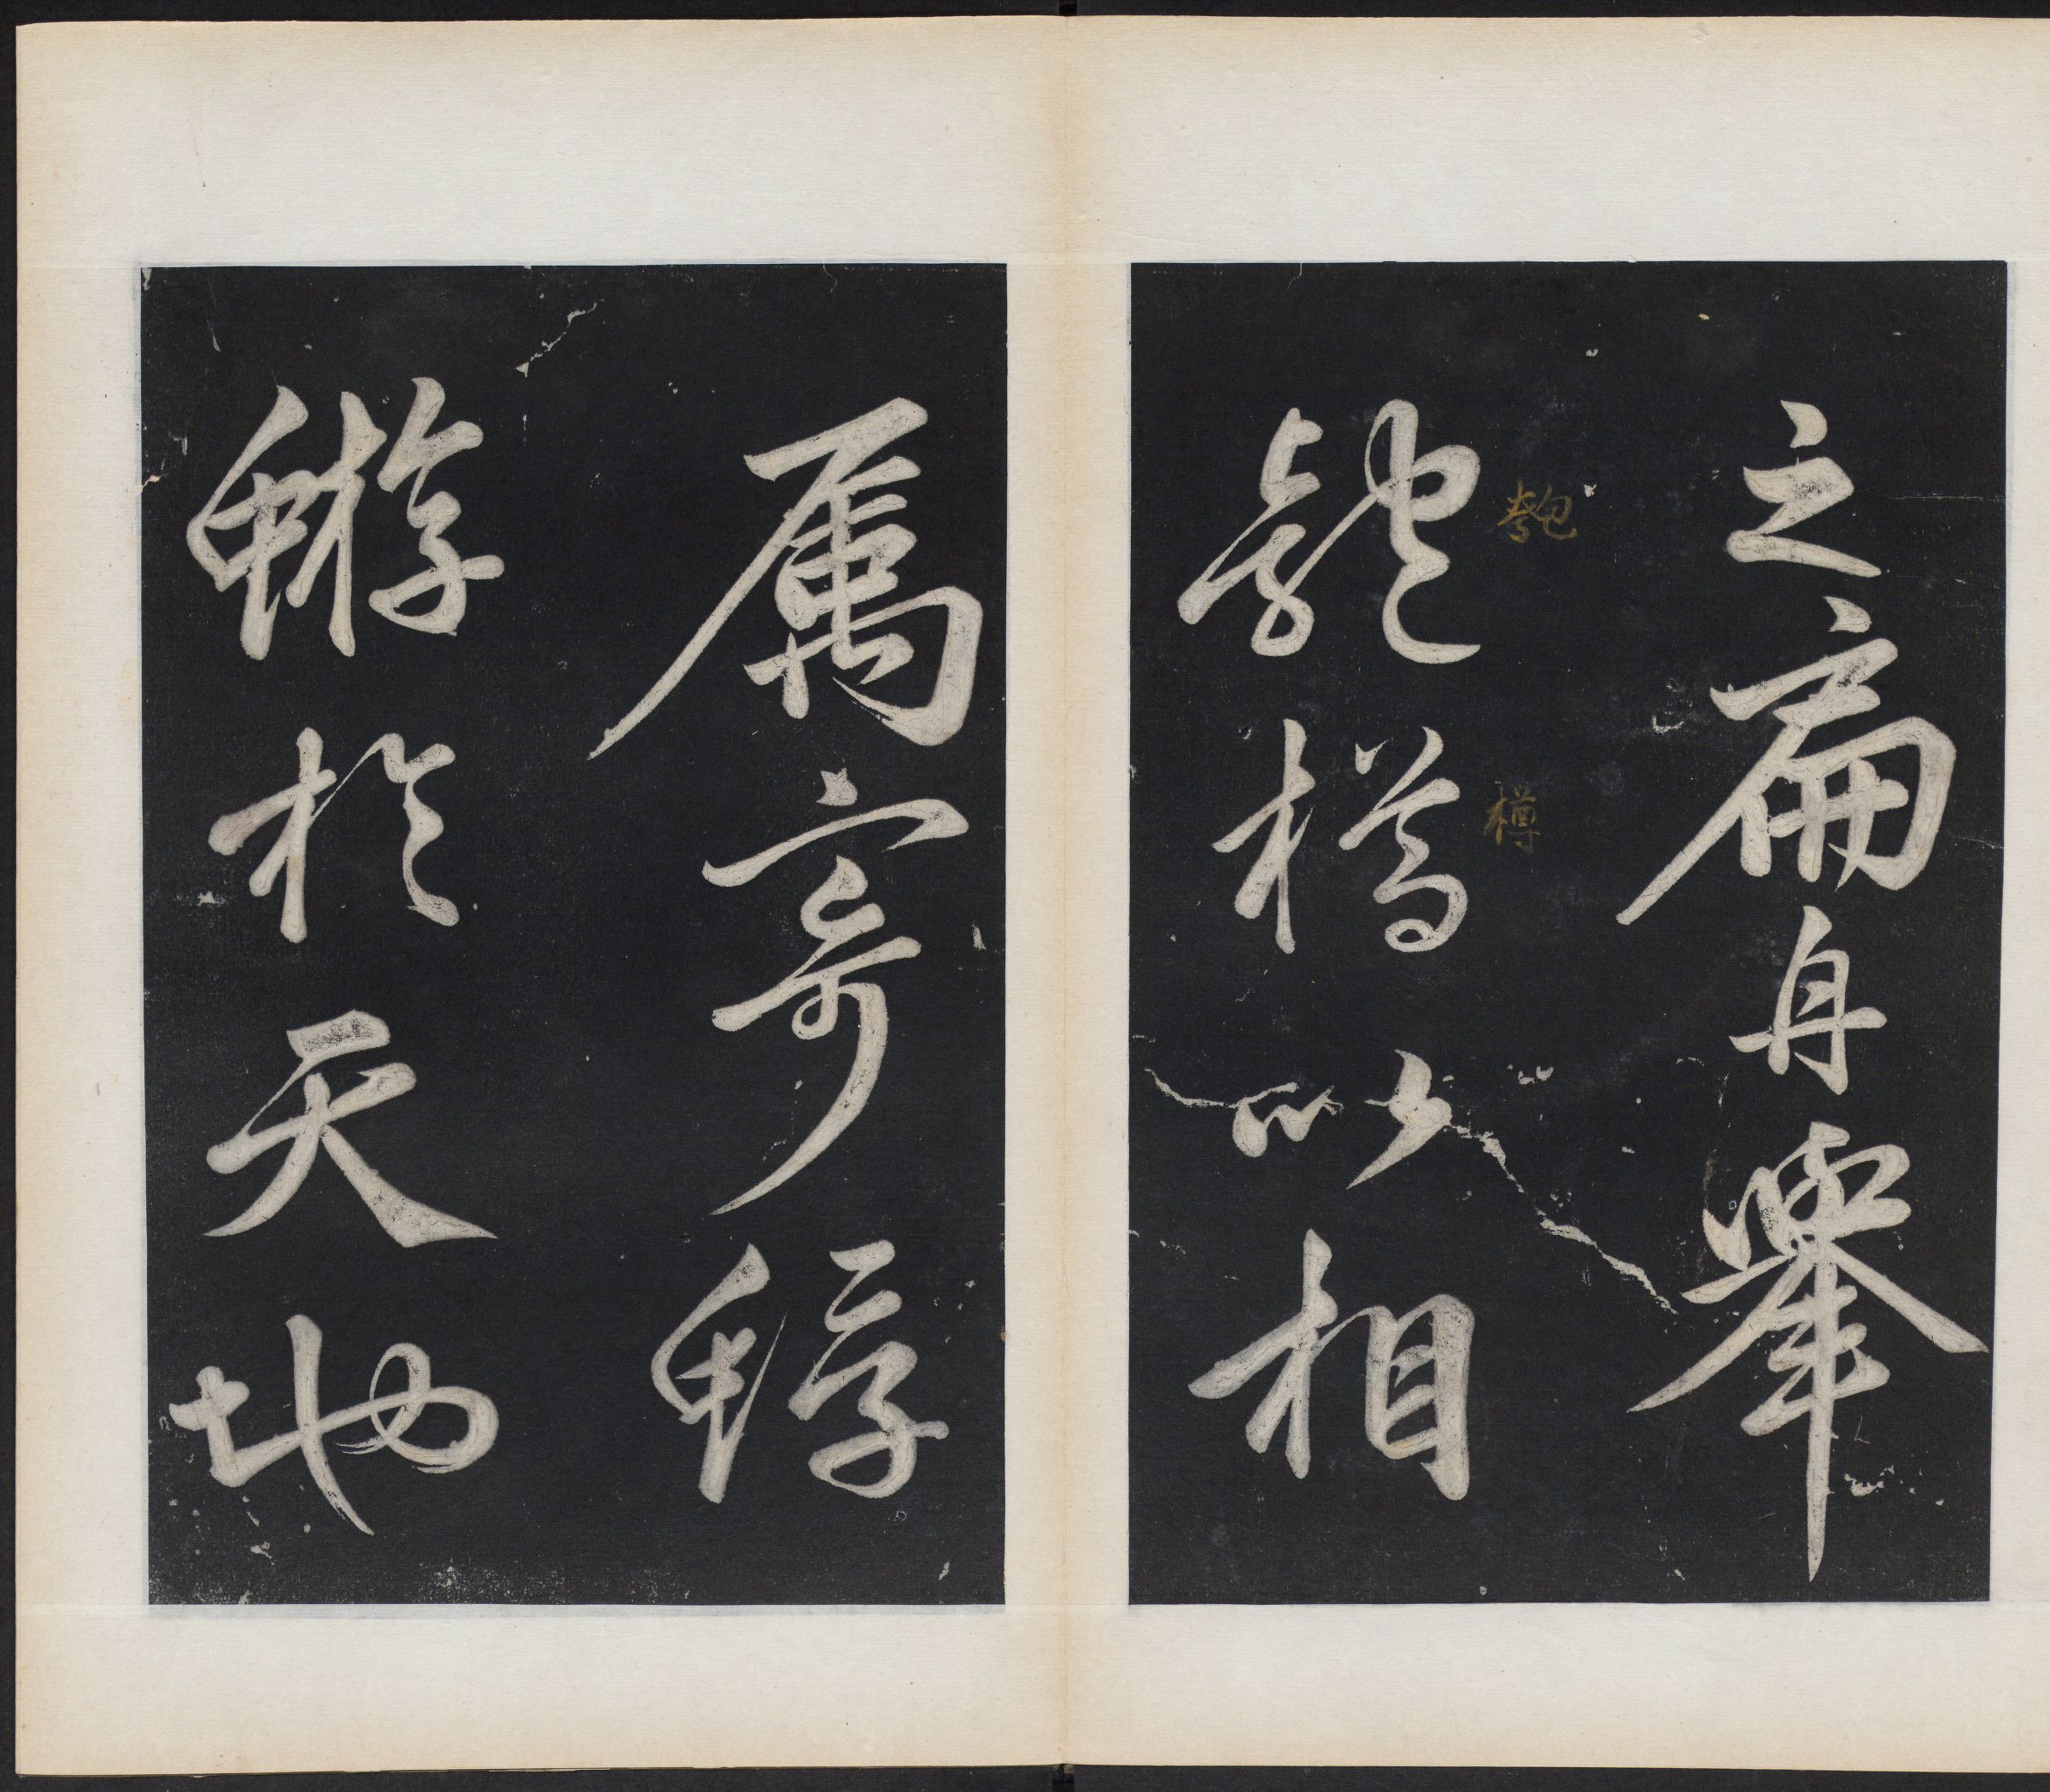 之扁舟舉
匏樽以相
匏
樽
属寄蜉
蝣於天地